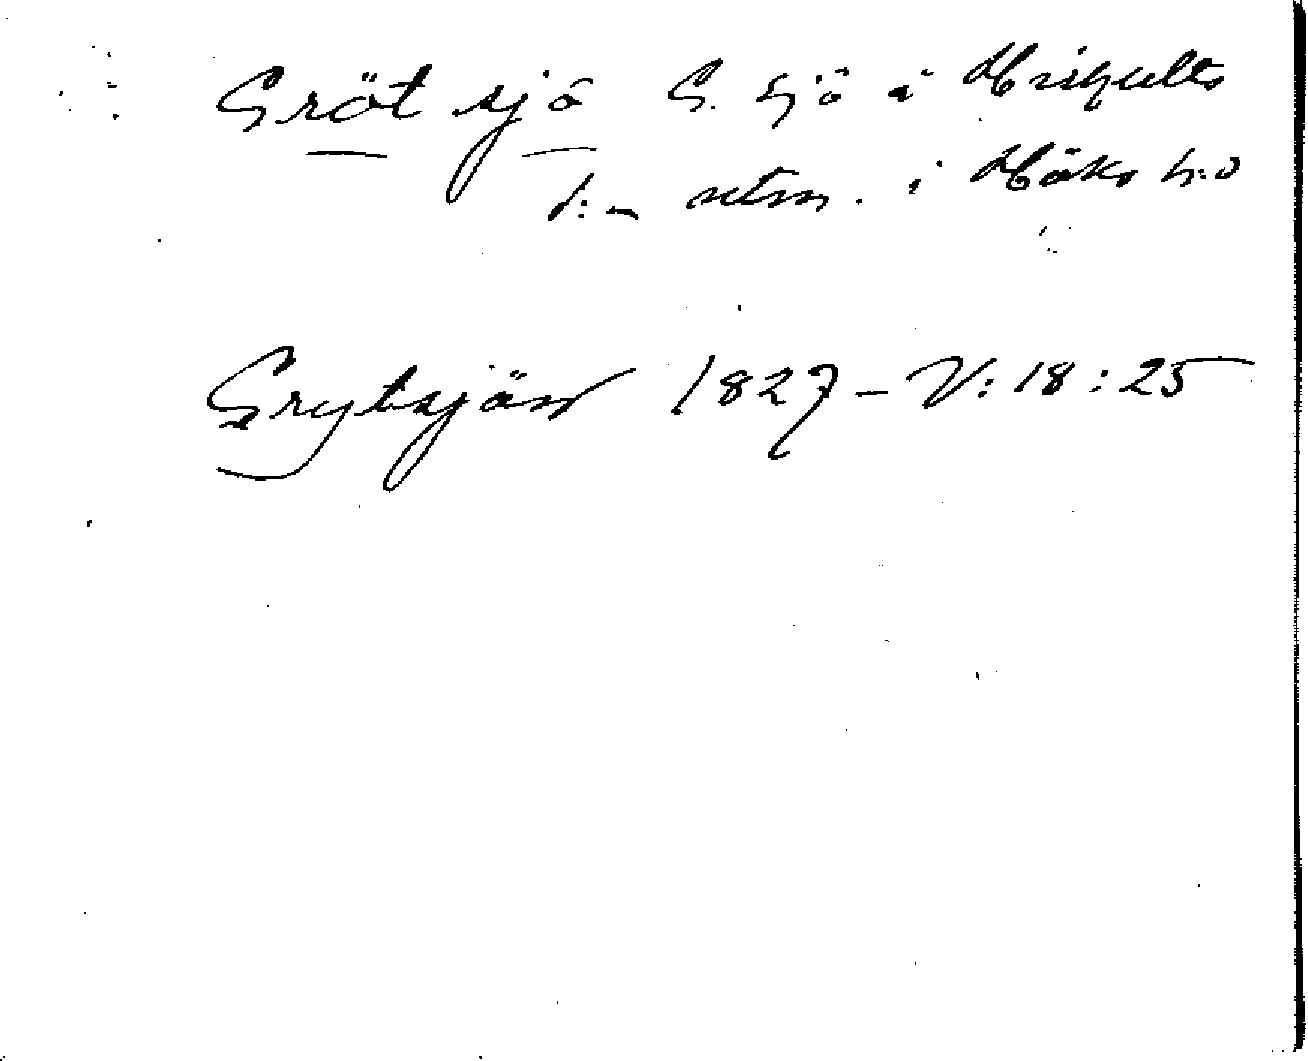 Gröt sjö G. sjö i Hishults
s:n utm. i Höks h:d
Grytsjön 1827 - V: 18 : 25